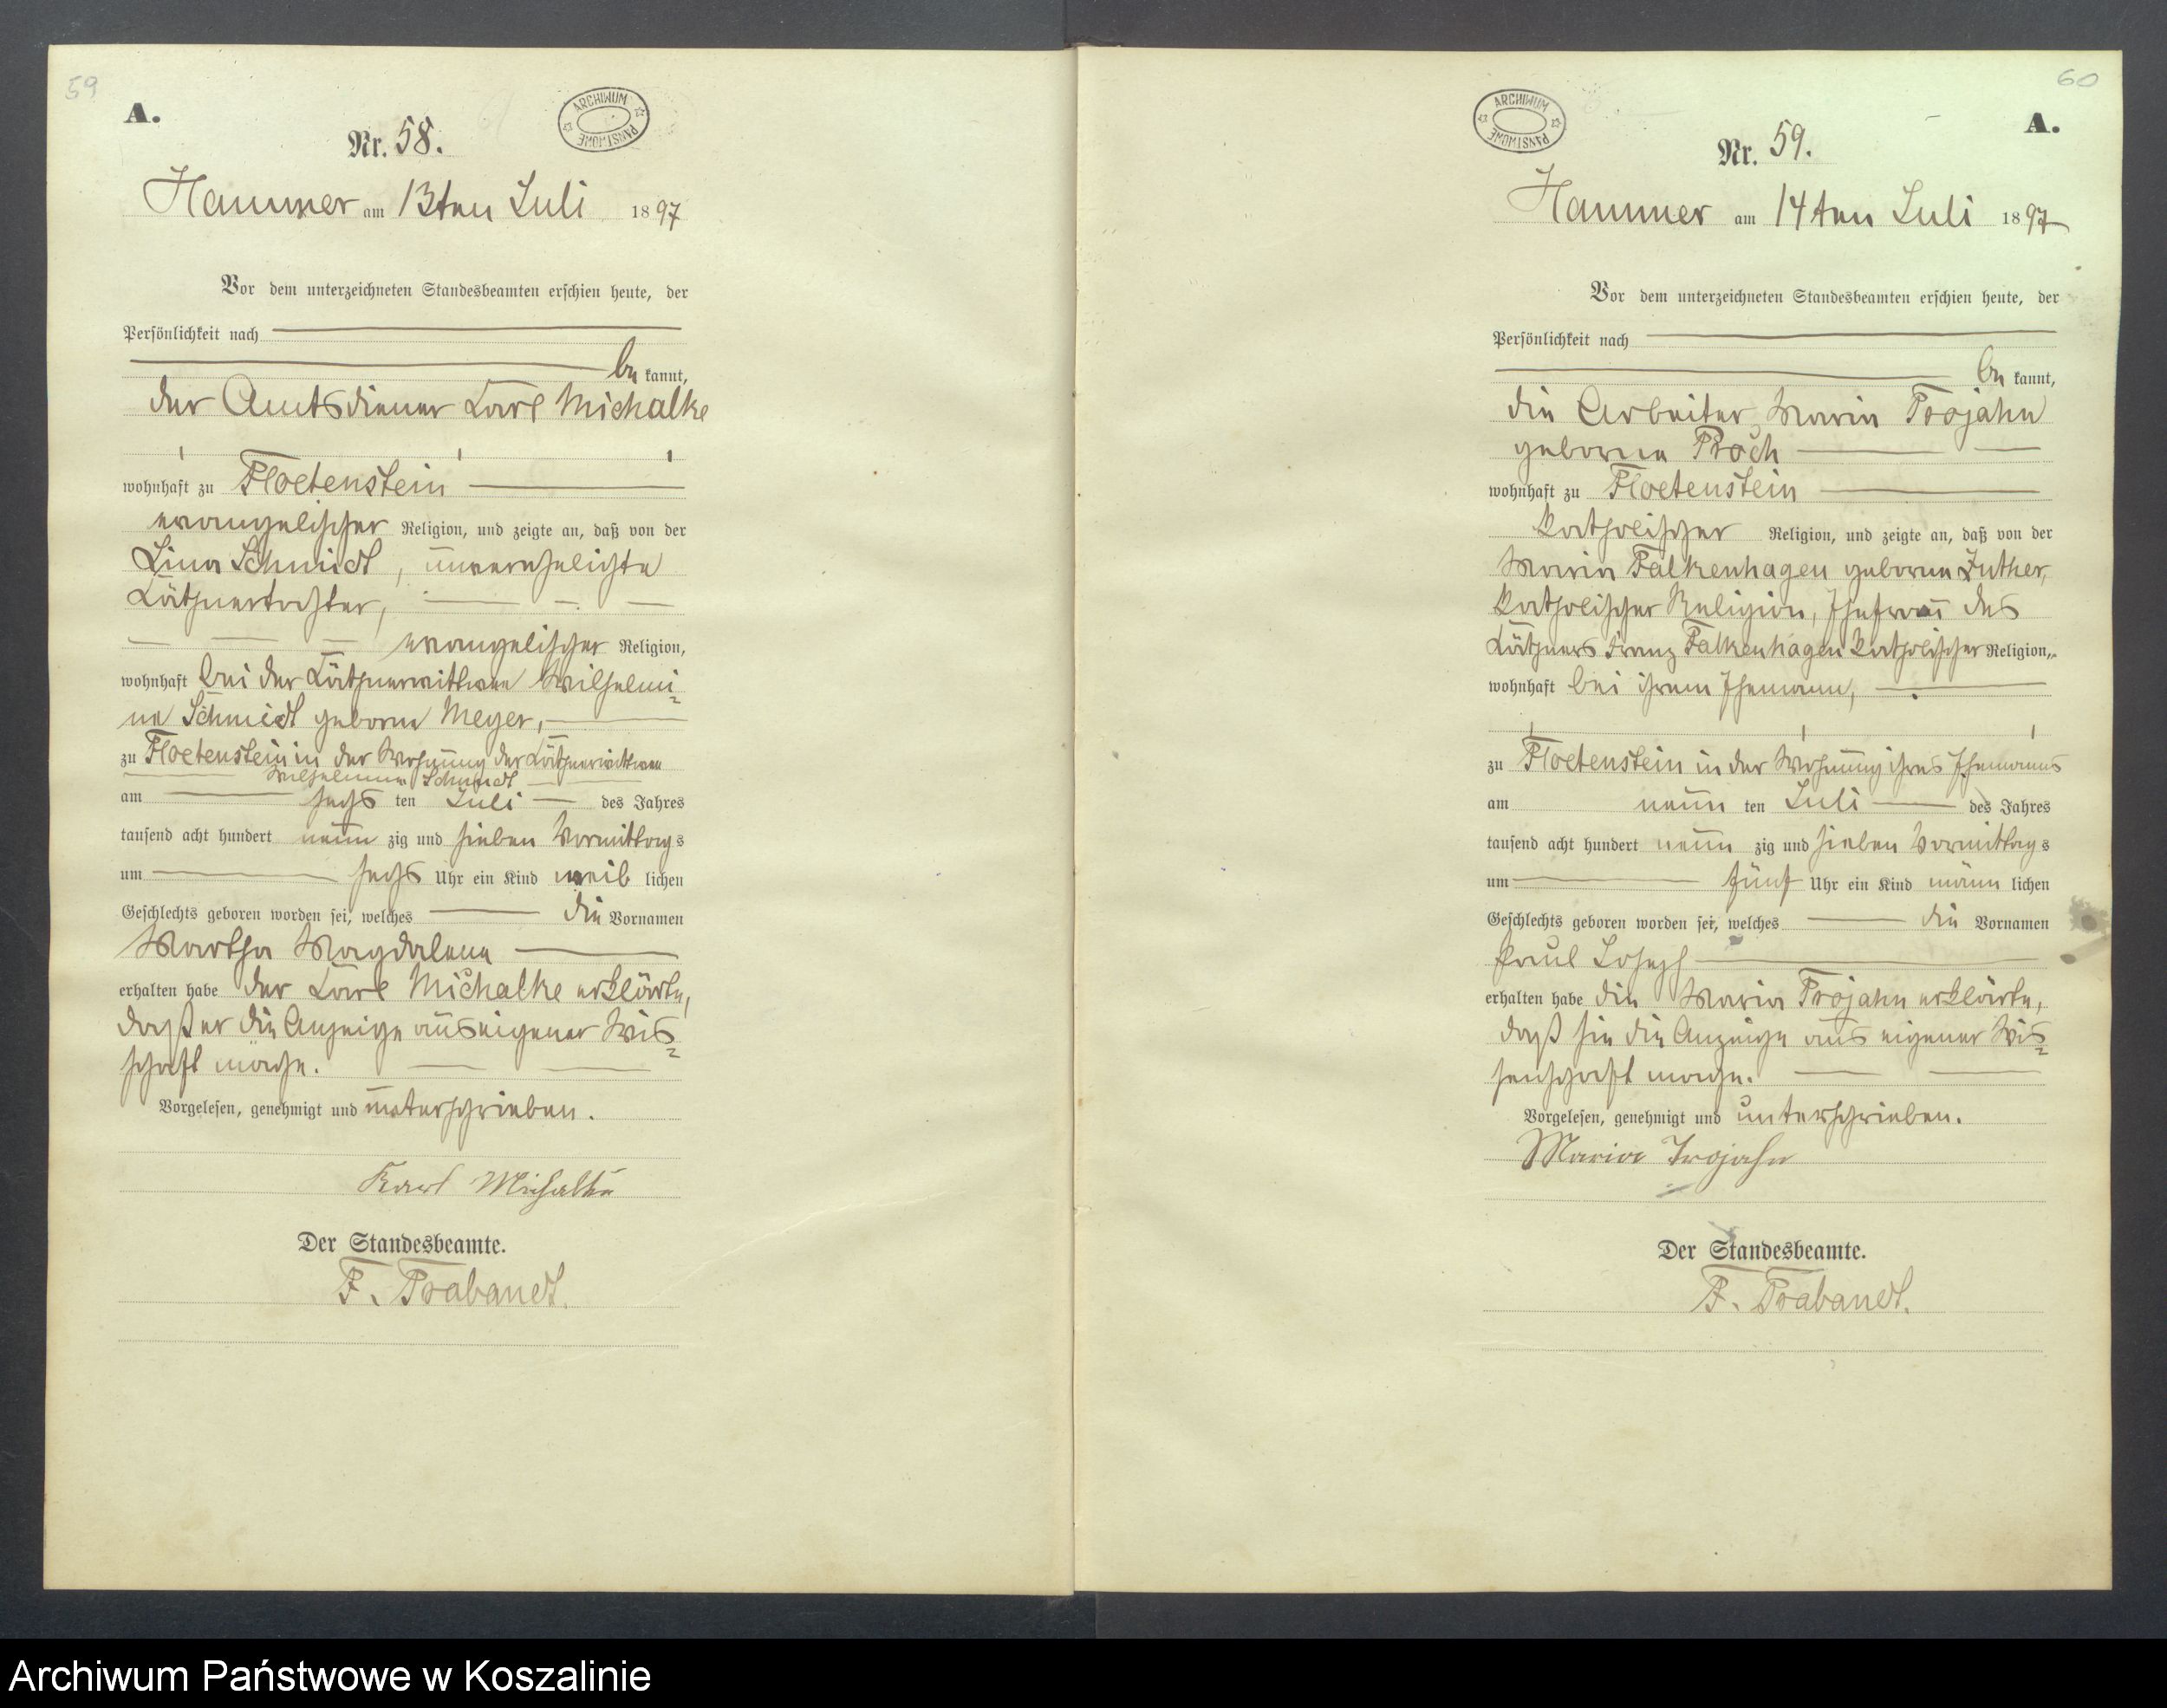 59
A.
Nr. 58.
ARCHIWUM PAŃSTWOWE
Hammer am 13ten Juli 1897
Vor dem unterzeichneten Standesbeamten erschien heute, der
Persönlichkeit nach
be kannt,
der Amtsdiener Karl Michalke
wohnhaft zu Floetenstein
evangelischer Religion, und zeigte an, daß von der
Lina Schmidt, unverehelichte
Käthnertochter,
evangelischer Religion,
wohnhaft bei der Käthnerwittwe Wilhelmi=
ne Schmidt geborne Meyer,
zu Floetenstein in der Wohnung der Käthnerwittwe
Wilhelmine Schmidt
am sechs ten Juli des Jahres
tausend acht hundert neun zig und sieben Vormittags
um sechs Uhr ein Kind weib lichen
Geschlechts geboren worden sei, welches die Vornamen
Martha Magdalene
erhalten habe der Karl Michalke erklärte,
daß er die Anzeige aus eigener Wis=
schaft mache.
Vorgelesen, genehmigt und unterschrieben.
Karl Michalke
Der Standesbeamte.
F. Trabandt.
60
A.
Nr. 59.
ARCHIWUM PAŃSTWOWE
Hammer am 14ten Juli 1897
Vor dem unterzeichneten Standesbeamten erschien heute, der
Persönlichkeit nach
be kannt,
die Arbeiter Maria Trojahn
geborne Proch
wohnhaft zu Floetenstein
katholischer Religion, und zeigte an, daß von der
Maria Falkenhagen geborne Luther,
katholischer Religion, Ehefrau des
Käthners Franz Falkenhagen katholischer Religion,
wohnhaft bei ihrem Ehemann,
zu Floetenstein in der Wohnung ihres Ehemanns
am neun ten Juli des Jahres
tausend acht hundert neun zig und sieben Vormittags
um fünf Uhr ein Kind männ lichen
Geschlechts geboren worden sei, welches die Vornamen
Paul Joseph
erhalten habe die Maria Trojahn erklärte,
daß sie die Anzeige aus eigener Wis=
senschaft mache.
Vorgelesen, genehmigt und unterschrieben.
Maria Trojahn
Der Standesbeamte.
F. Trabandt.
Archiwum Państwowe w Koszalinie